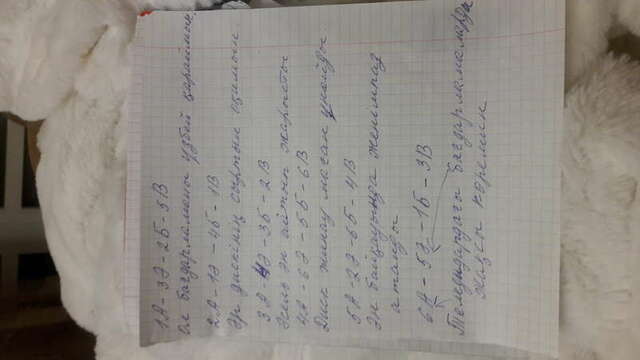 1А-3Ә-2Б-5В
Ол бағдарламаны үзбей қараймын.
2А-1Ә-4Б-1В
Әр дискінің сыртын оқимын
3А-4Ә-3Б-2В
Әсель ән айтып жарысты
4А-6Ә-5Б-6В
Диск жинау маған ұнойды
5А-2Ә-6Б-4В
Ән байқауында жеңімпаз
атанды
6А-5Ә-1Б-3В
бағдарламаларды
жақсы көремин